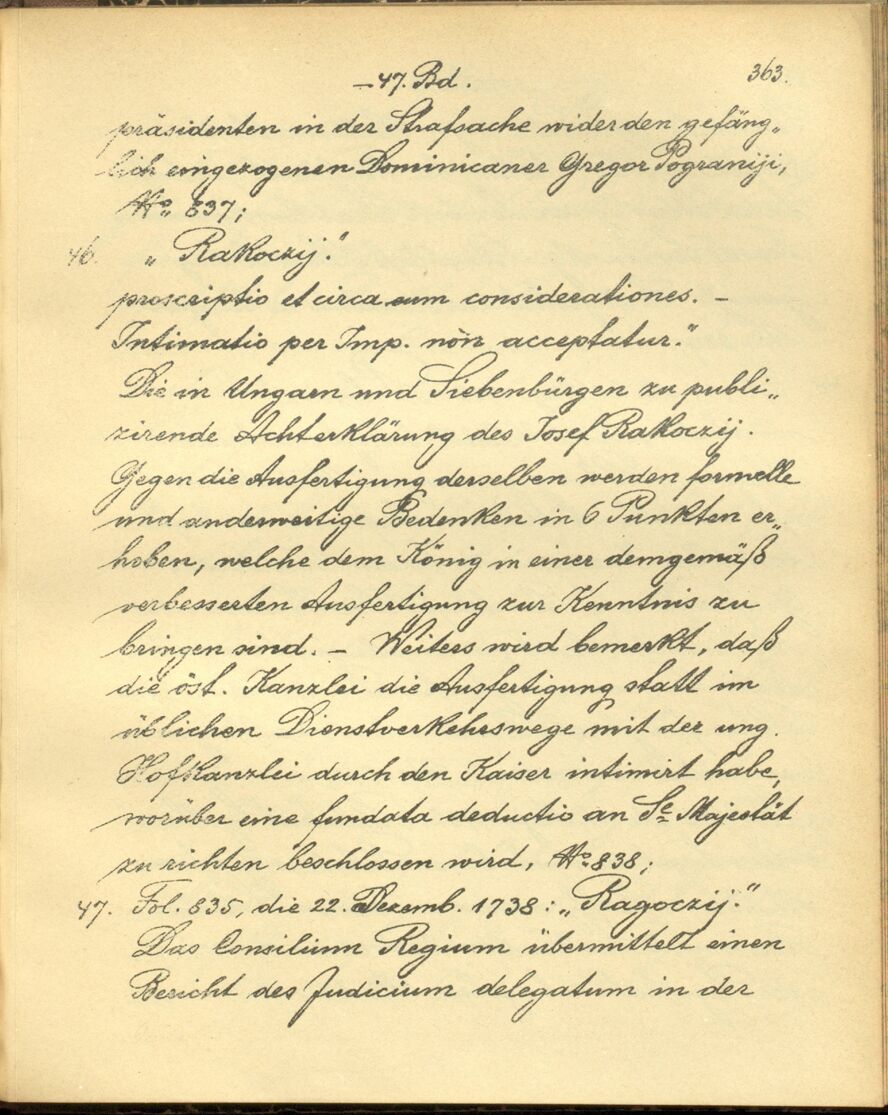 – 47. Bd.
363.
präsidenten in der Strafsache wider den gefäng„
lich eingezogenen Dominicaner Gregor Pogranyi,
No 837;
46. „Rakoczij.“
proscriptio et circa eam considerationes. –
Intimatio per Imp. non acceptatur.“
Die in Ungarn und Siebenbürgen zu publi„
zirende Achterklärung des Josef Rakoczij.
Gegen die Ausfertigung derselben werden formelle
und anderweitige Bedenken in 6 Punkten er„
hoben, welche dem König in einer demgemäß
verbesserten Ausfertigung zur Kenntnis zu
bringen sind. – Weiters wird bemerkt, daß
die öst. Kanzlei die Ausfertigung statt im
üblichen Dienstverkehrswege mit der ung.
Hofkanzlei durch den Kaiser intimirt habe,
worüber eine fundata deductio an Se Majestät
zu richten beschlossen wird, No 838;
47. Fol. 835, die 22. Dezemb. 1738: „Ragoczij.“
Das Consilium Regium übermittelt einen
Bericht des Judicium delegatum in der